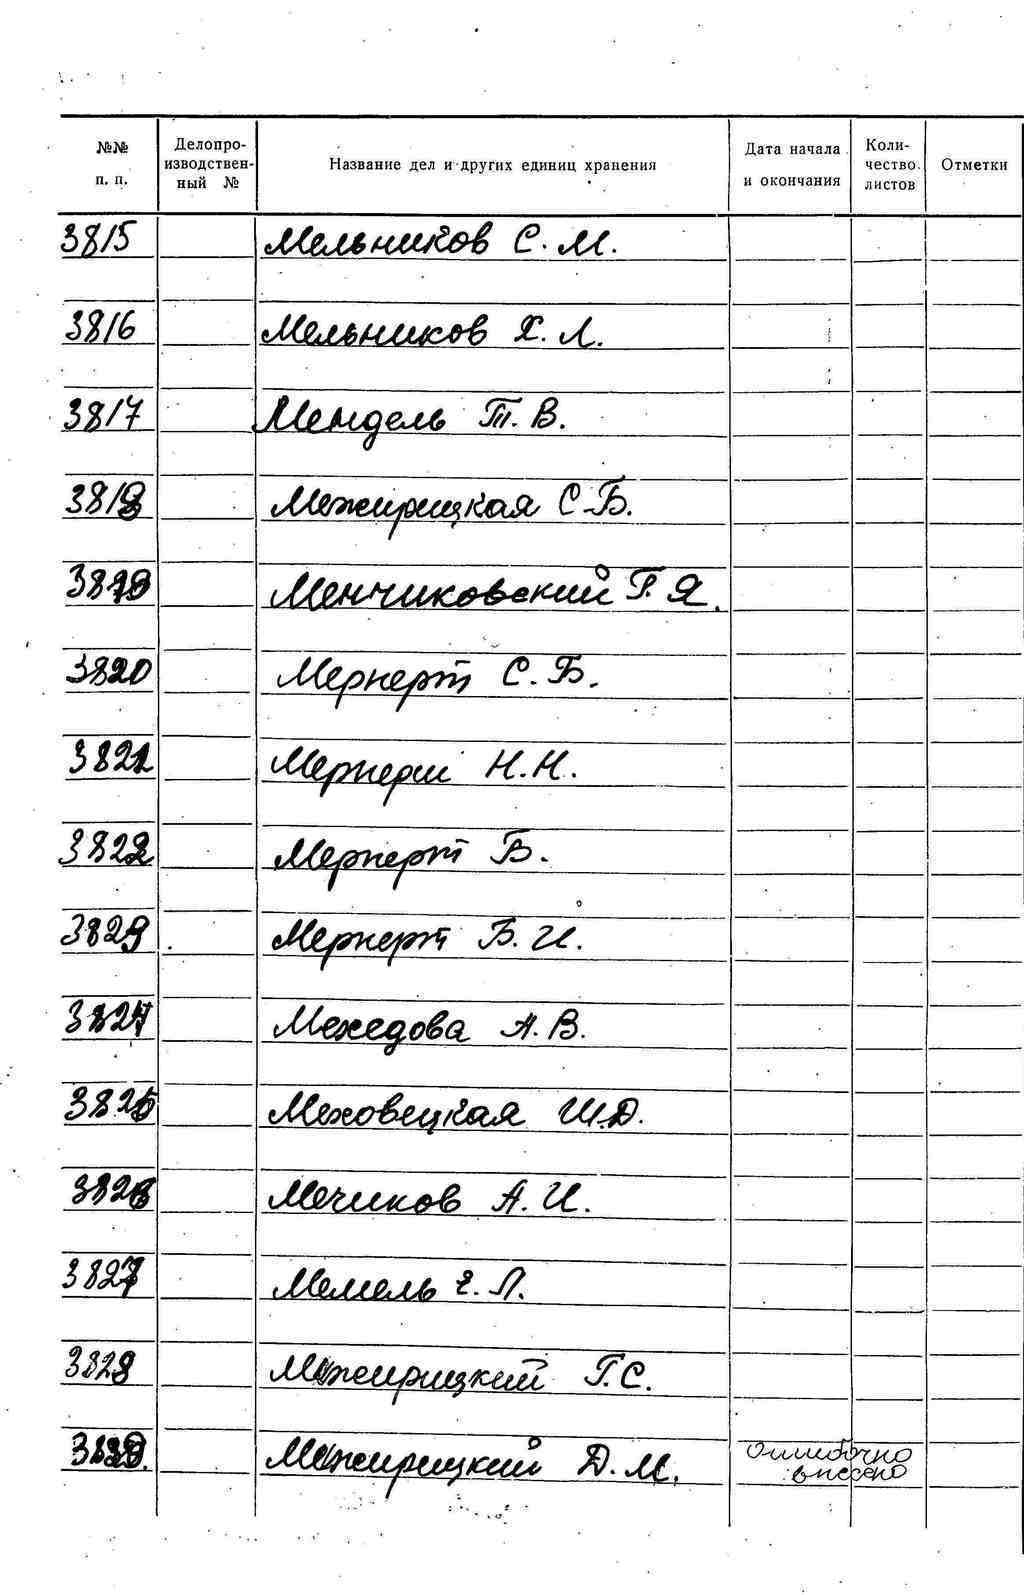 №№ п. п. Делопроизводственный № Название дел и других единиц хранения Дата начала и окончания Количество листов Отметки
3815 Мельников С. М.
3816 Мельников Х. Л.
3817 Мендель Т. В.
3818 Межирицкая С. Б.
3819 Менчиковский Г. Я.
3820 Меркерт С. Б.
3821 Меркерт Н. Н.
3822 Меркерт Б.
3823 Меркерт Б. И.
3824 Мехедова А. В.
3825 Меховецкая Ш. Д.
3826 Мечиков А. И.
3827 Мемель Е. Л.
3828 Межирицкий Г. С.
3829 Межирицкий Д. М. Ошибочно внесено